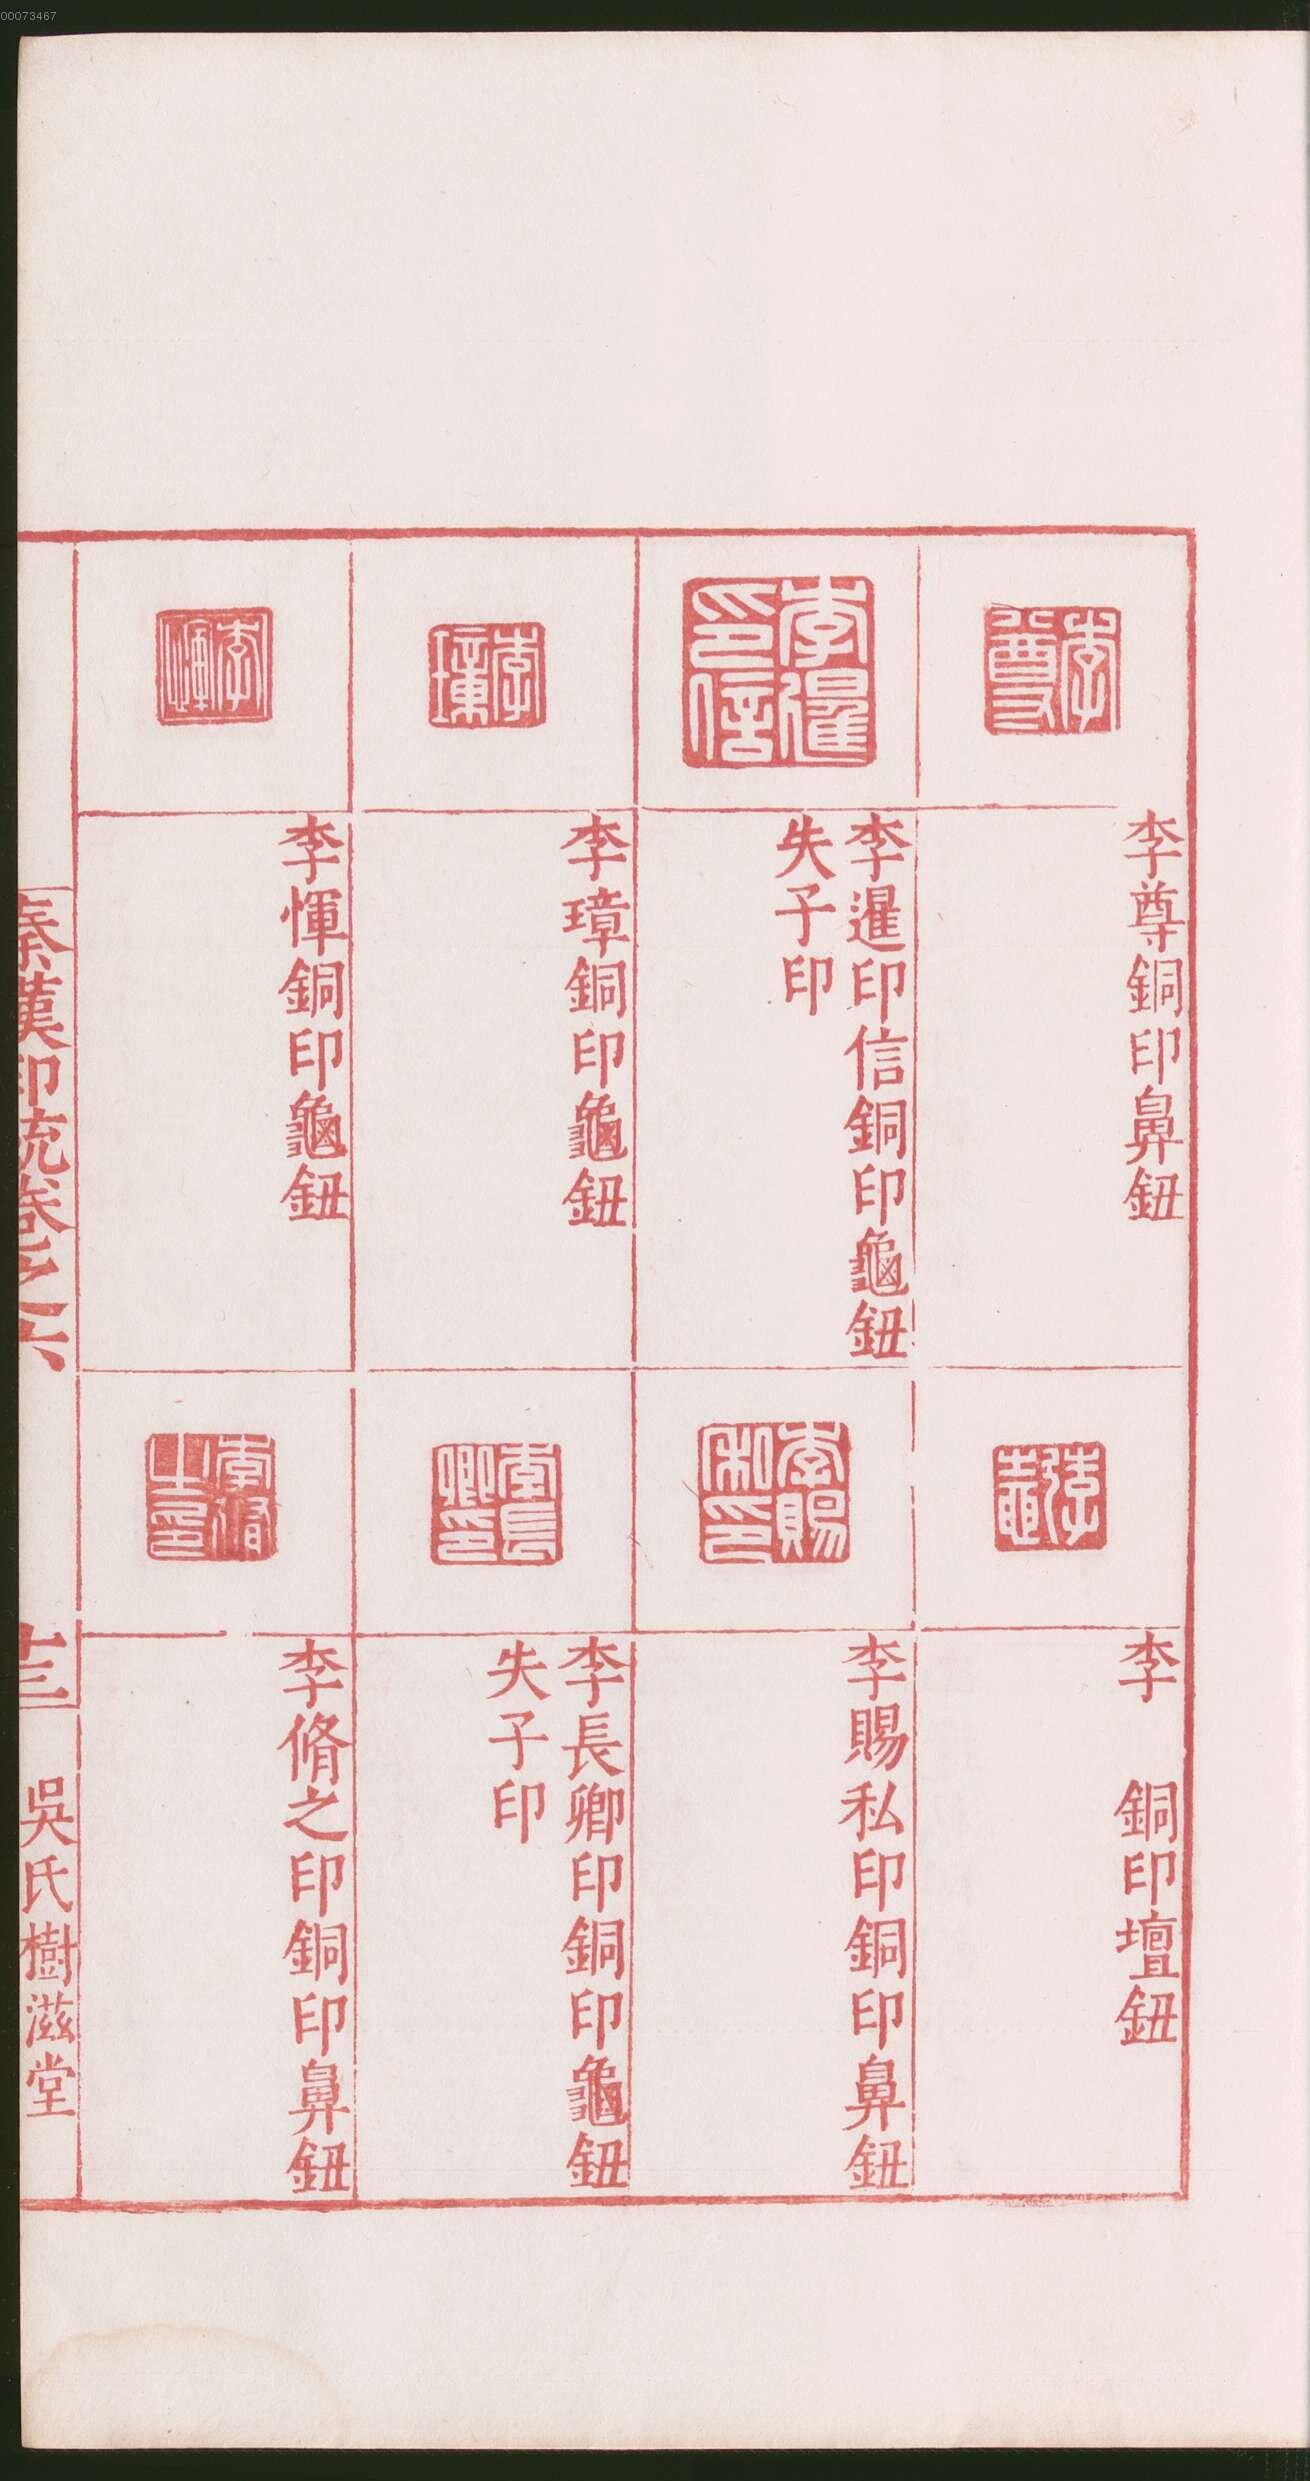 00073467
李尊
李尊銅印鼻鈕
李暹印信
李暹印信銅印龜鈕
失子印
李璋
李璋銅印龜鈕
李惲
李惲銅印龜鈕
李
李　銅印壇鈕
李賜私印
李賜私印銅印鼻鈕
李長卿印
李長卿印銅印龜鈕
失子印
李脩之印
李脩之印銅印鼻鈕
秦漢印統卷之六
十三
吳氏樹滋堂